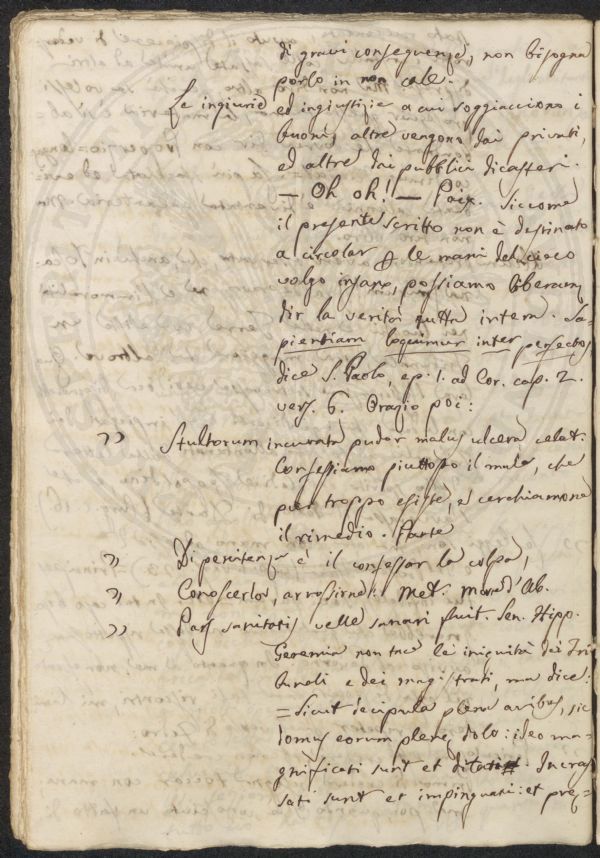 di gravi conseguenze, non bisogna
porlo in non cale.
Le ingiurie ed ingiustizie a cui soggiacciono i
buoni, altre vengono dai privati,
ed altre dai pubblici dicasteri.
— Oh oh! — Pace. Siccome
il presente scritto non è destinato
a circolar p le mani del cieco
volgo insano, possiamo liberamen
dir la verità tutta intera. Sa-
pientiam loquimur inter perfectos
dice S. Paolo, ep. 1. ad Cor. cap. 2.
vers. 6. Orazio poi:
" Stultorum incurata pudor malus ulcera celat.
Confessiamo piuttosto il male, che
pur troppo esiste, e cerchiamone
il rimedio. Parte
" Di penitenza è il confessar la colpa,
" Conoscerla, arrossirne. Met. Ab.
" Pars sanitatis velle sanari fuit. Sen. Hipp.
Geremia non tace le iniquità dei Tri
bunali e dei magistrati, ma dice:
= Sicut decipula plena avibus, sic
domus eorum plenę dolo: ideo ma-
gnificati sunt et ditati. Incras
sati sunt et impinguati: et prę=